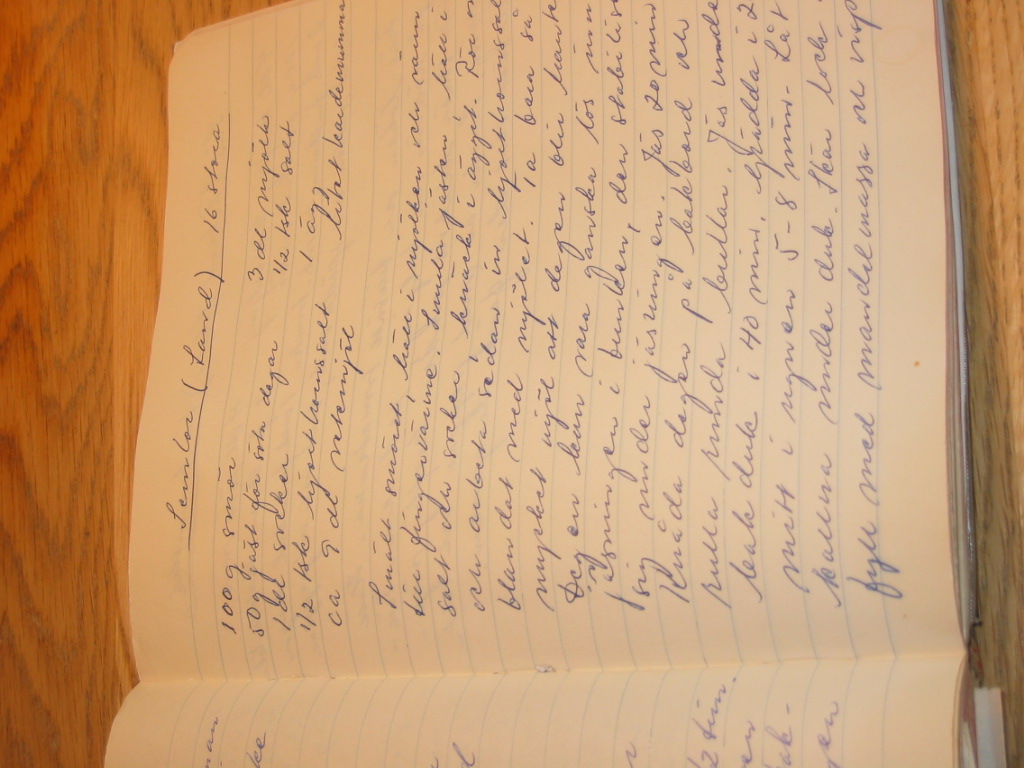 Semlor (Land) 16 stora
100 g smör 3 dl mjölk
50 g jäst för söta degar 1/2 tsk salt
1 dl socker 1 ägg
1/2 tsk hjorthornssalt litet kardemumma
ca 9 dl vetemjöl
Smält smöret, häll i mjölken och värm
till fingervärme. Smula jästen häll i
salt och socker, knäck i ägget. Rör
och arbeta sedan in hjorthornssalt
blandat med mjölet. Ta bara så
mycket mjöl att degen blir hante
Degen kan vara ganska lös inna
jäsningen i bunken, den stabilise
sig under jäsningen. Jäs 20 min
Knåda degen på bakbord och
rulla runda bullar. Jäs unde
bakduk i 40 min. Grädda i 2
mitt i ugnen 5-8 min. Låt
kallna under duk. Skär lock
fyll med mandelmassa och visp
man
ke
l
r
/2 tim.
en
bak-
gen